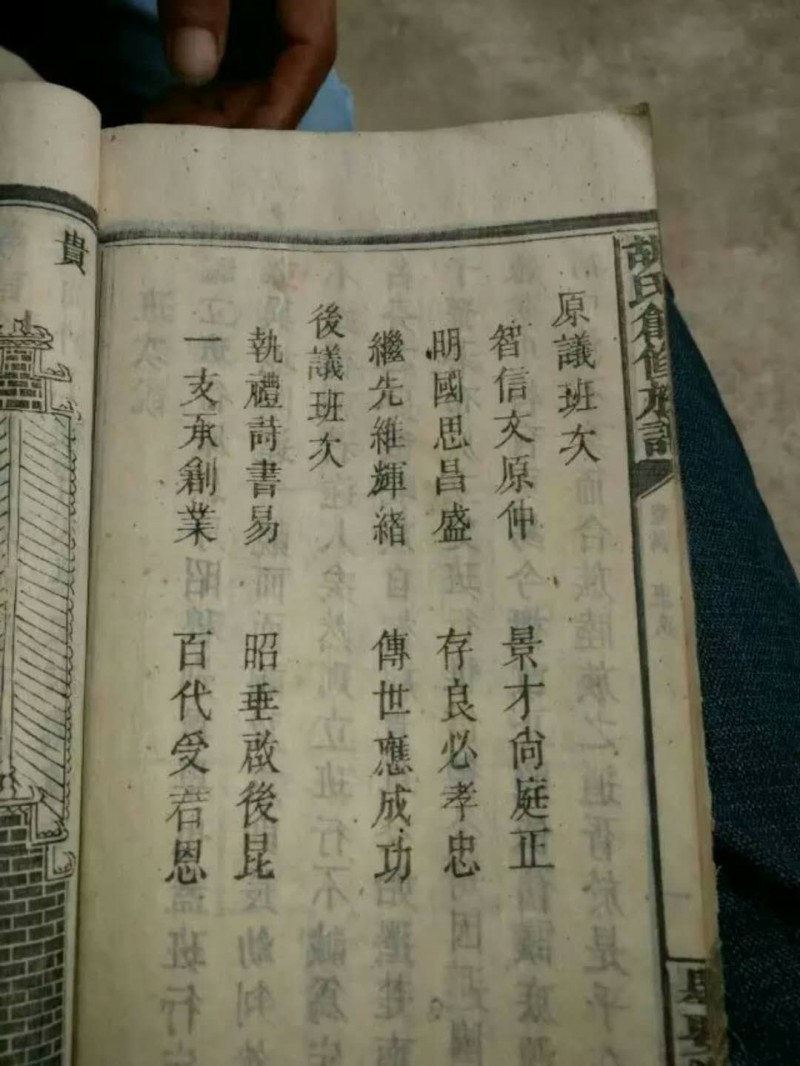 胡氏創修族譜
原議班次
智信文原仲 景才尚庭正
明國思昌盛 存良必孝忠
繼先維輝緒 傳世應成功
後議班次
執禮詩書易 昭垂啟後昆
一支承創業 百代受君恩
貴